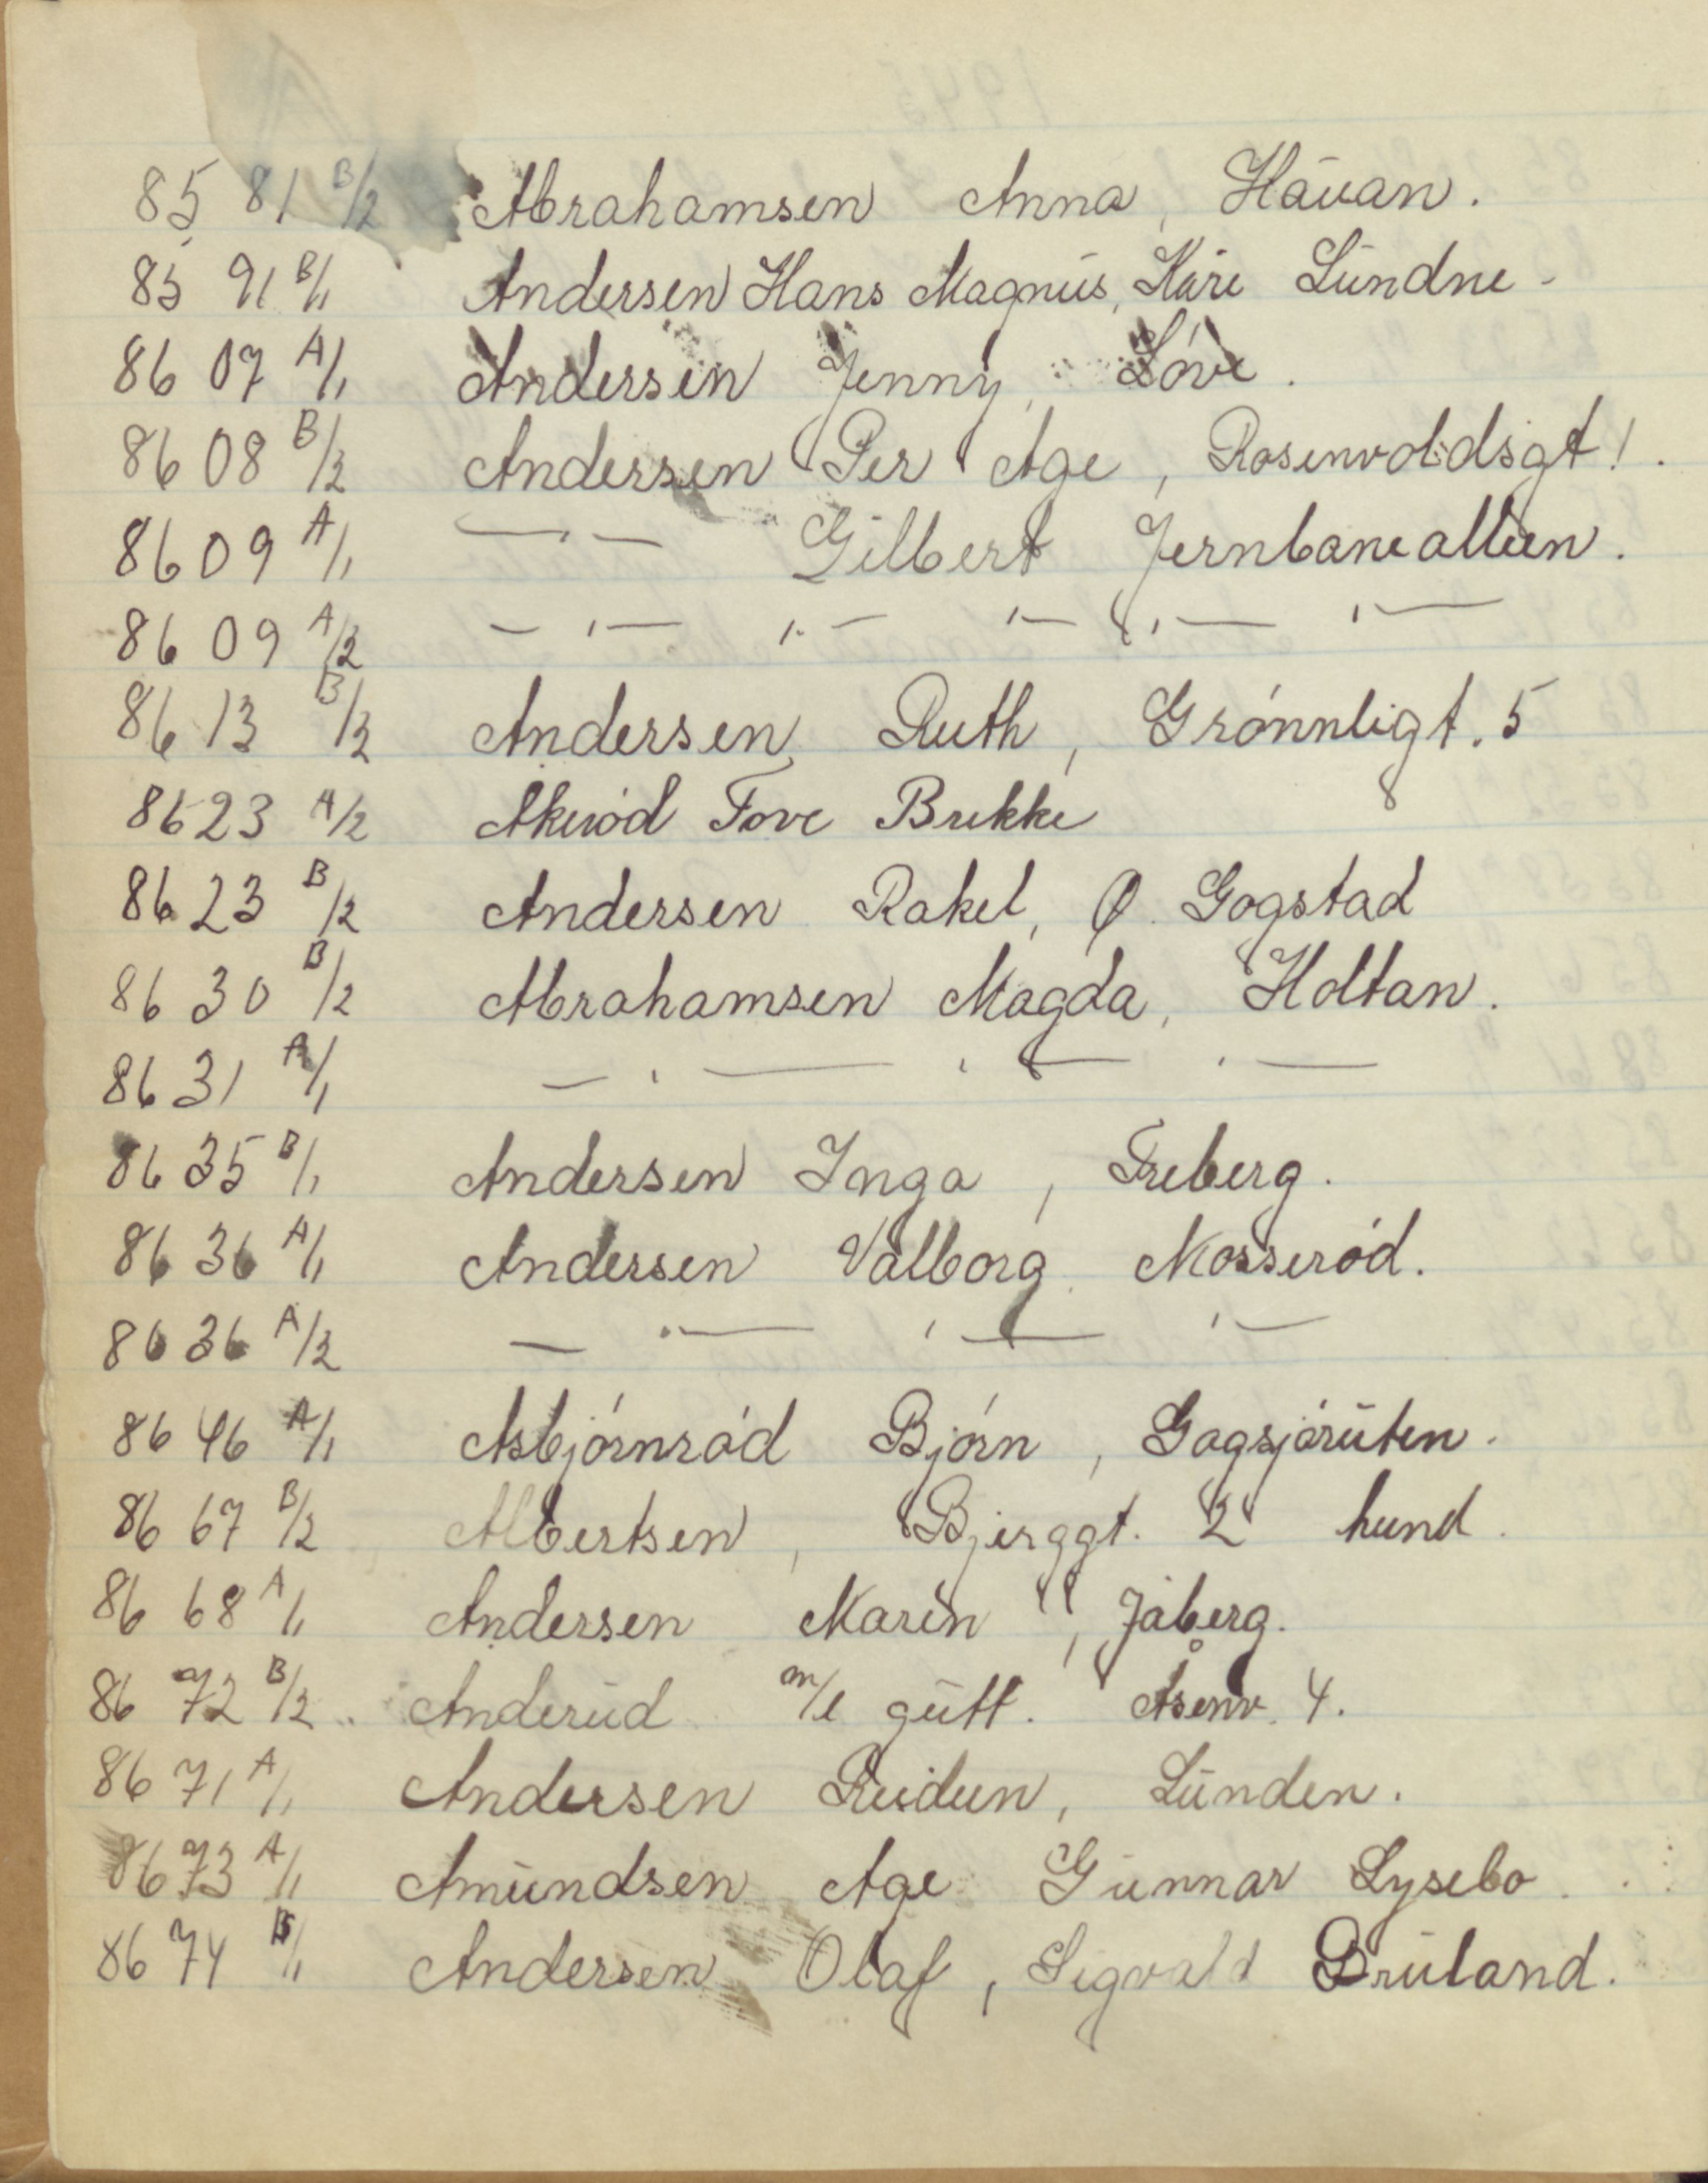 85 81 B/2 Abrahamsen Anna, Håvan.
85 91 B/1 Andersen Hans Magnus, Kåre Lundne -
86 07 A/1 Andersen Jenny, Löve.
86 08 B/2 Andersen Per Åge, Rosenvoldsgt!.
86 09 A/1 — ,, — Gilbert Jernbanealleen.
86 09 A/2 — ,, — ,, — ,, — ,, — ,, —
86 13 B/2 Andersen, Ruth, Grónnligt. 5
86 23 A/2 Akeród Tove Brekke
86 23 B/2 Andersen Rakel, Ø. Gogstad
86 30 B/2 Abrahamsen Magda, Holtan.
86 31 A/1 — ,, — ,, — ,, —
86 35 B/1 Andersen Inga, Freberg.
86 36 A/1 Andersen Valborg. Mosseród.
86 36 A/2 — ,, — ,, — ,, —
86 46 A/1 Asbjórnród Bjórn, Gogsjóruten.
86 67 B/2 Albertsen, Bjerggt. 2 hund.
86 68 A/1 Andersen Marin, Jåberg.
86 72 B/2 Anderud m/l gutt. Åsenv. 4.
86 71 A/1 Andersen Reidun, Lunden.
86 73 A/1 Amundsen Åge Gunnar Lysebo.
86 74 B/1 Andersen Olaf, Sigvald Bruland.